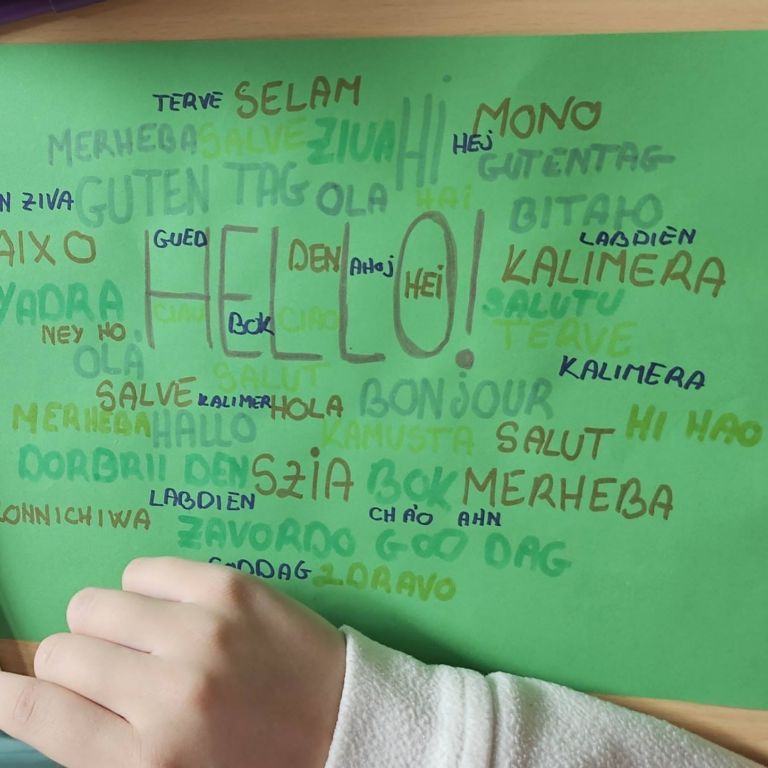 TERVE SELAM
HI MONO
MERHEBA SALVE ZIVA HEJ GUTENTAG
N ZIVA GUTEN TAG OLA HAI BITAIO
AIXO GUED DEN AHOJ HEI LABDIEN
HELLO! KALIMERA
YADRA CIAO BOK CIAO SALUTU
NEY HO TERVE
OLÁ SALUT KALIMERA
SALVE KALIMER HOLA BONJOUR
MERHEBA HALLO KAMUSTA SALUT HI HAO
DORBRII DEN SZIA BOK MERHEBA
KONNICHIWA LABDIEN CHÀO AHN
ZAVORDO GOD DAG
GODDAG ZDRAVO